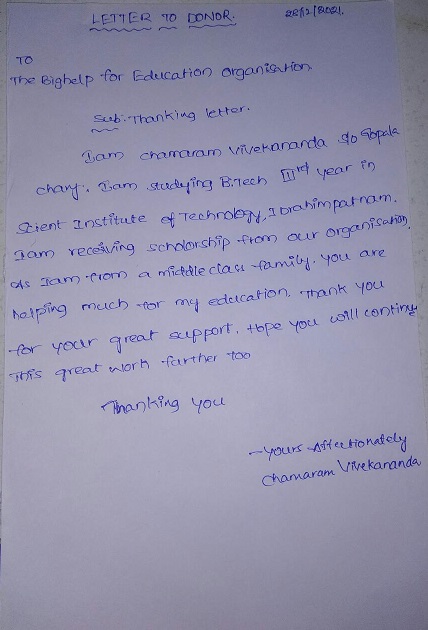 LETTER TO DONOR.
28/12/2021.
TO
The Bighelp for Education organisation
Sub: Thanking letter.
I am chamaram Vivekananda S/o Gopala
chary. I am studying B.Tech IIIrd year in
Scient Institute of Technology, Ibrahimpatnam.
I am receiving scholorship from our organisation
As I am from a middle class family. you are
helping much for my education. Thank you
for your great support. Hope you will continu
This great work further too
Thanking you
-yours Affectionately
Chamaram Vivekananda